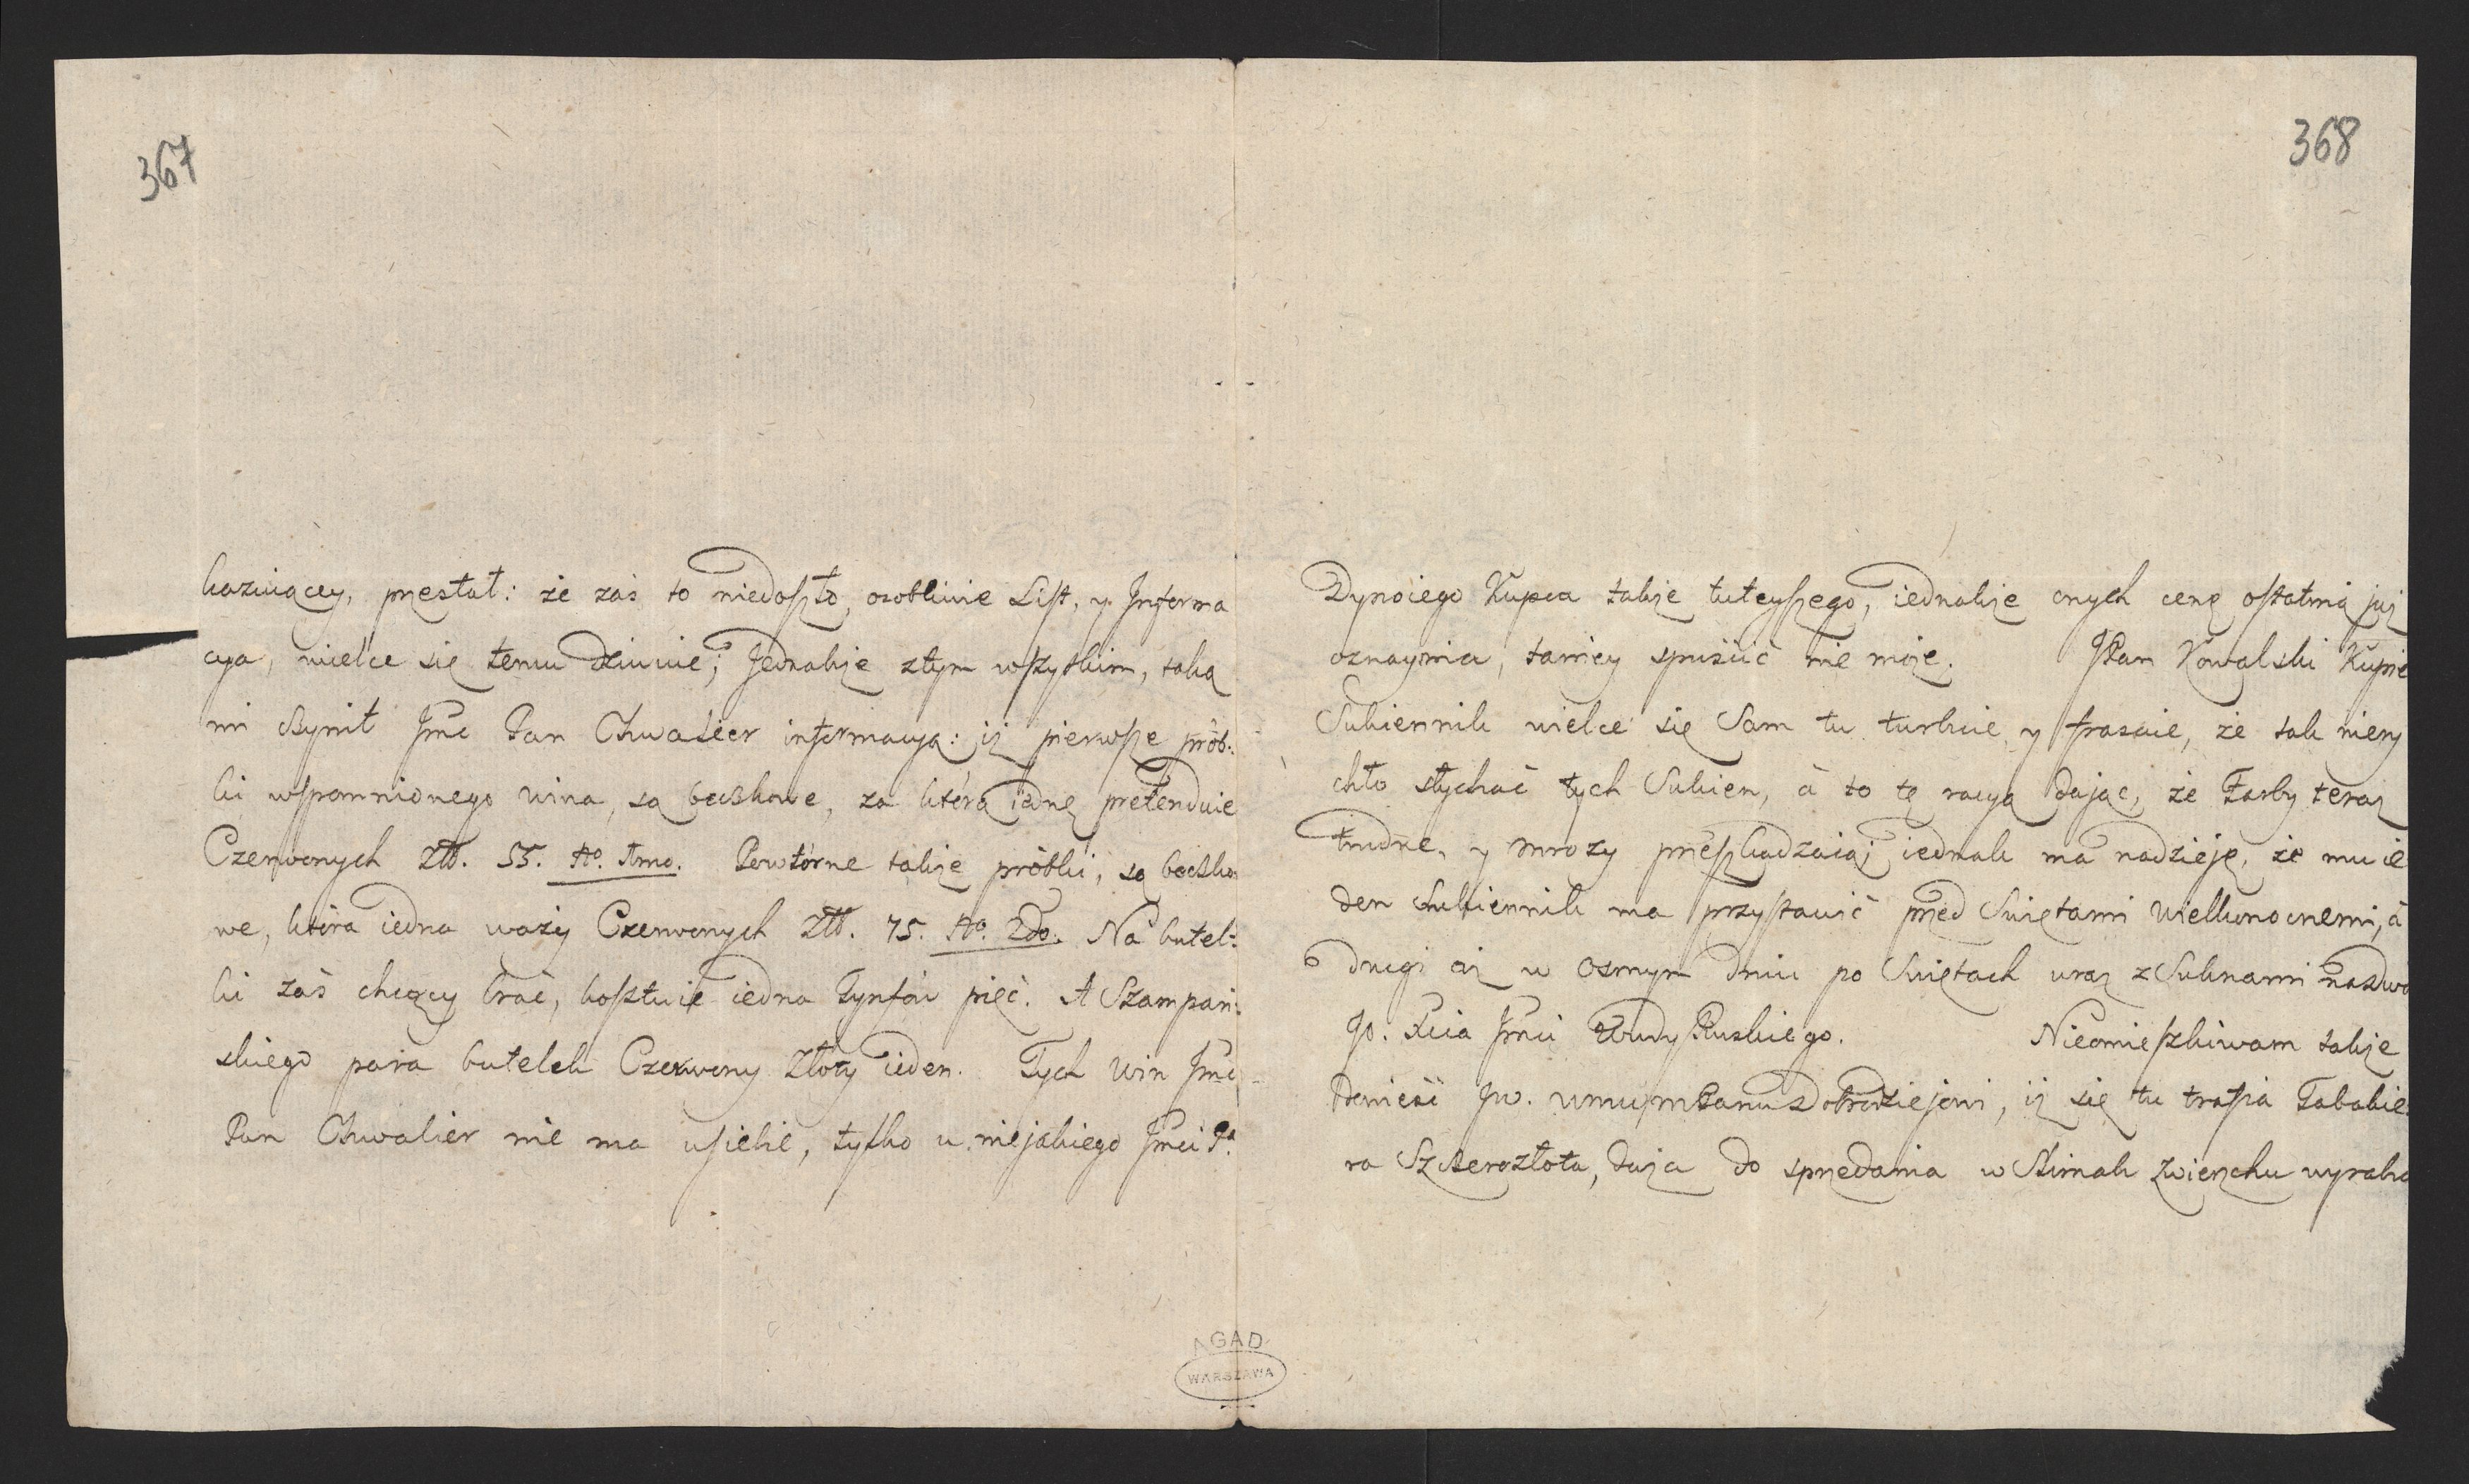 367
kazuiącey, przestał: że zaś to niedoszło, osobliwie List, y Informa
cya, wielce się temu dziwuie; Jednakże ztym wszytkim, taką
mi czynił Jmc Pan Chwalier informacyą: iż pierwsze prób:
ki wspomnionego wina, są beczkowe, za którą iednę pretenduie
Czerwonych Złł. 55. No. Imo. Powtórne także próbki, są beczko
we, która iedna waży Czerwonych Złł. 75. No. 2do. Na butel:
ki zaś chcący brać, kosztuie iedna Tynfów pięć. A Szampań:
skiego para butelek Czerwony Złoty ieden. Tych win Jmć
Pan Chwalier nie ma usiebie, tylko u niejakiego Jmci Pa.
368
Dynoiego Kupca także tuteyszego, iednakże onych cenę ostatnią już
oznaymia, taniey spuścić nie może. JPan Kowalski Kupie
Sukiennik wielce się Sam tu turbuie, y frasuie, że tak niery
chło słychać tych Sukien, à to tę racyą dając, że Farby teraz
trudne, y mrozy przeszkadzaią; iednak ma nadzieję, że mu ie
den Sukiennik ma przystawić przed Swiętami Wielkonocnemi, à
drugi aż w osmym dniu po Swiętach wraz z Suknami na dwó
Jo. Xcia Jmci Wdy Ruskiego. Nieomieszkiwam także
donieść Jw. WmmPanu Dobrodziejowi, iż się tu trafia Tabakie
ra Szczerozłota, duża do sprzedania w Ślimak zwierzchu wyrabia
AGAD
WARSZAWA